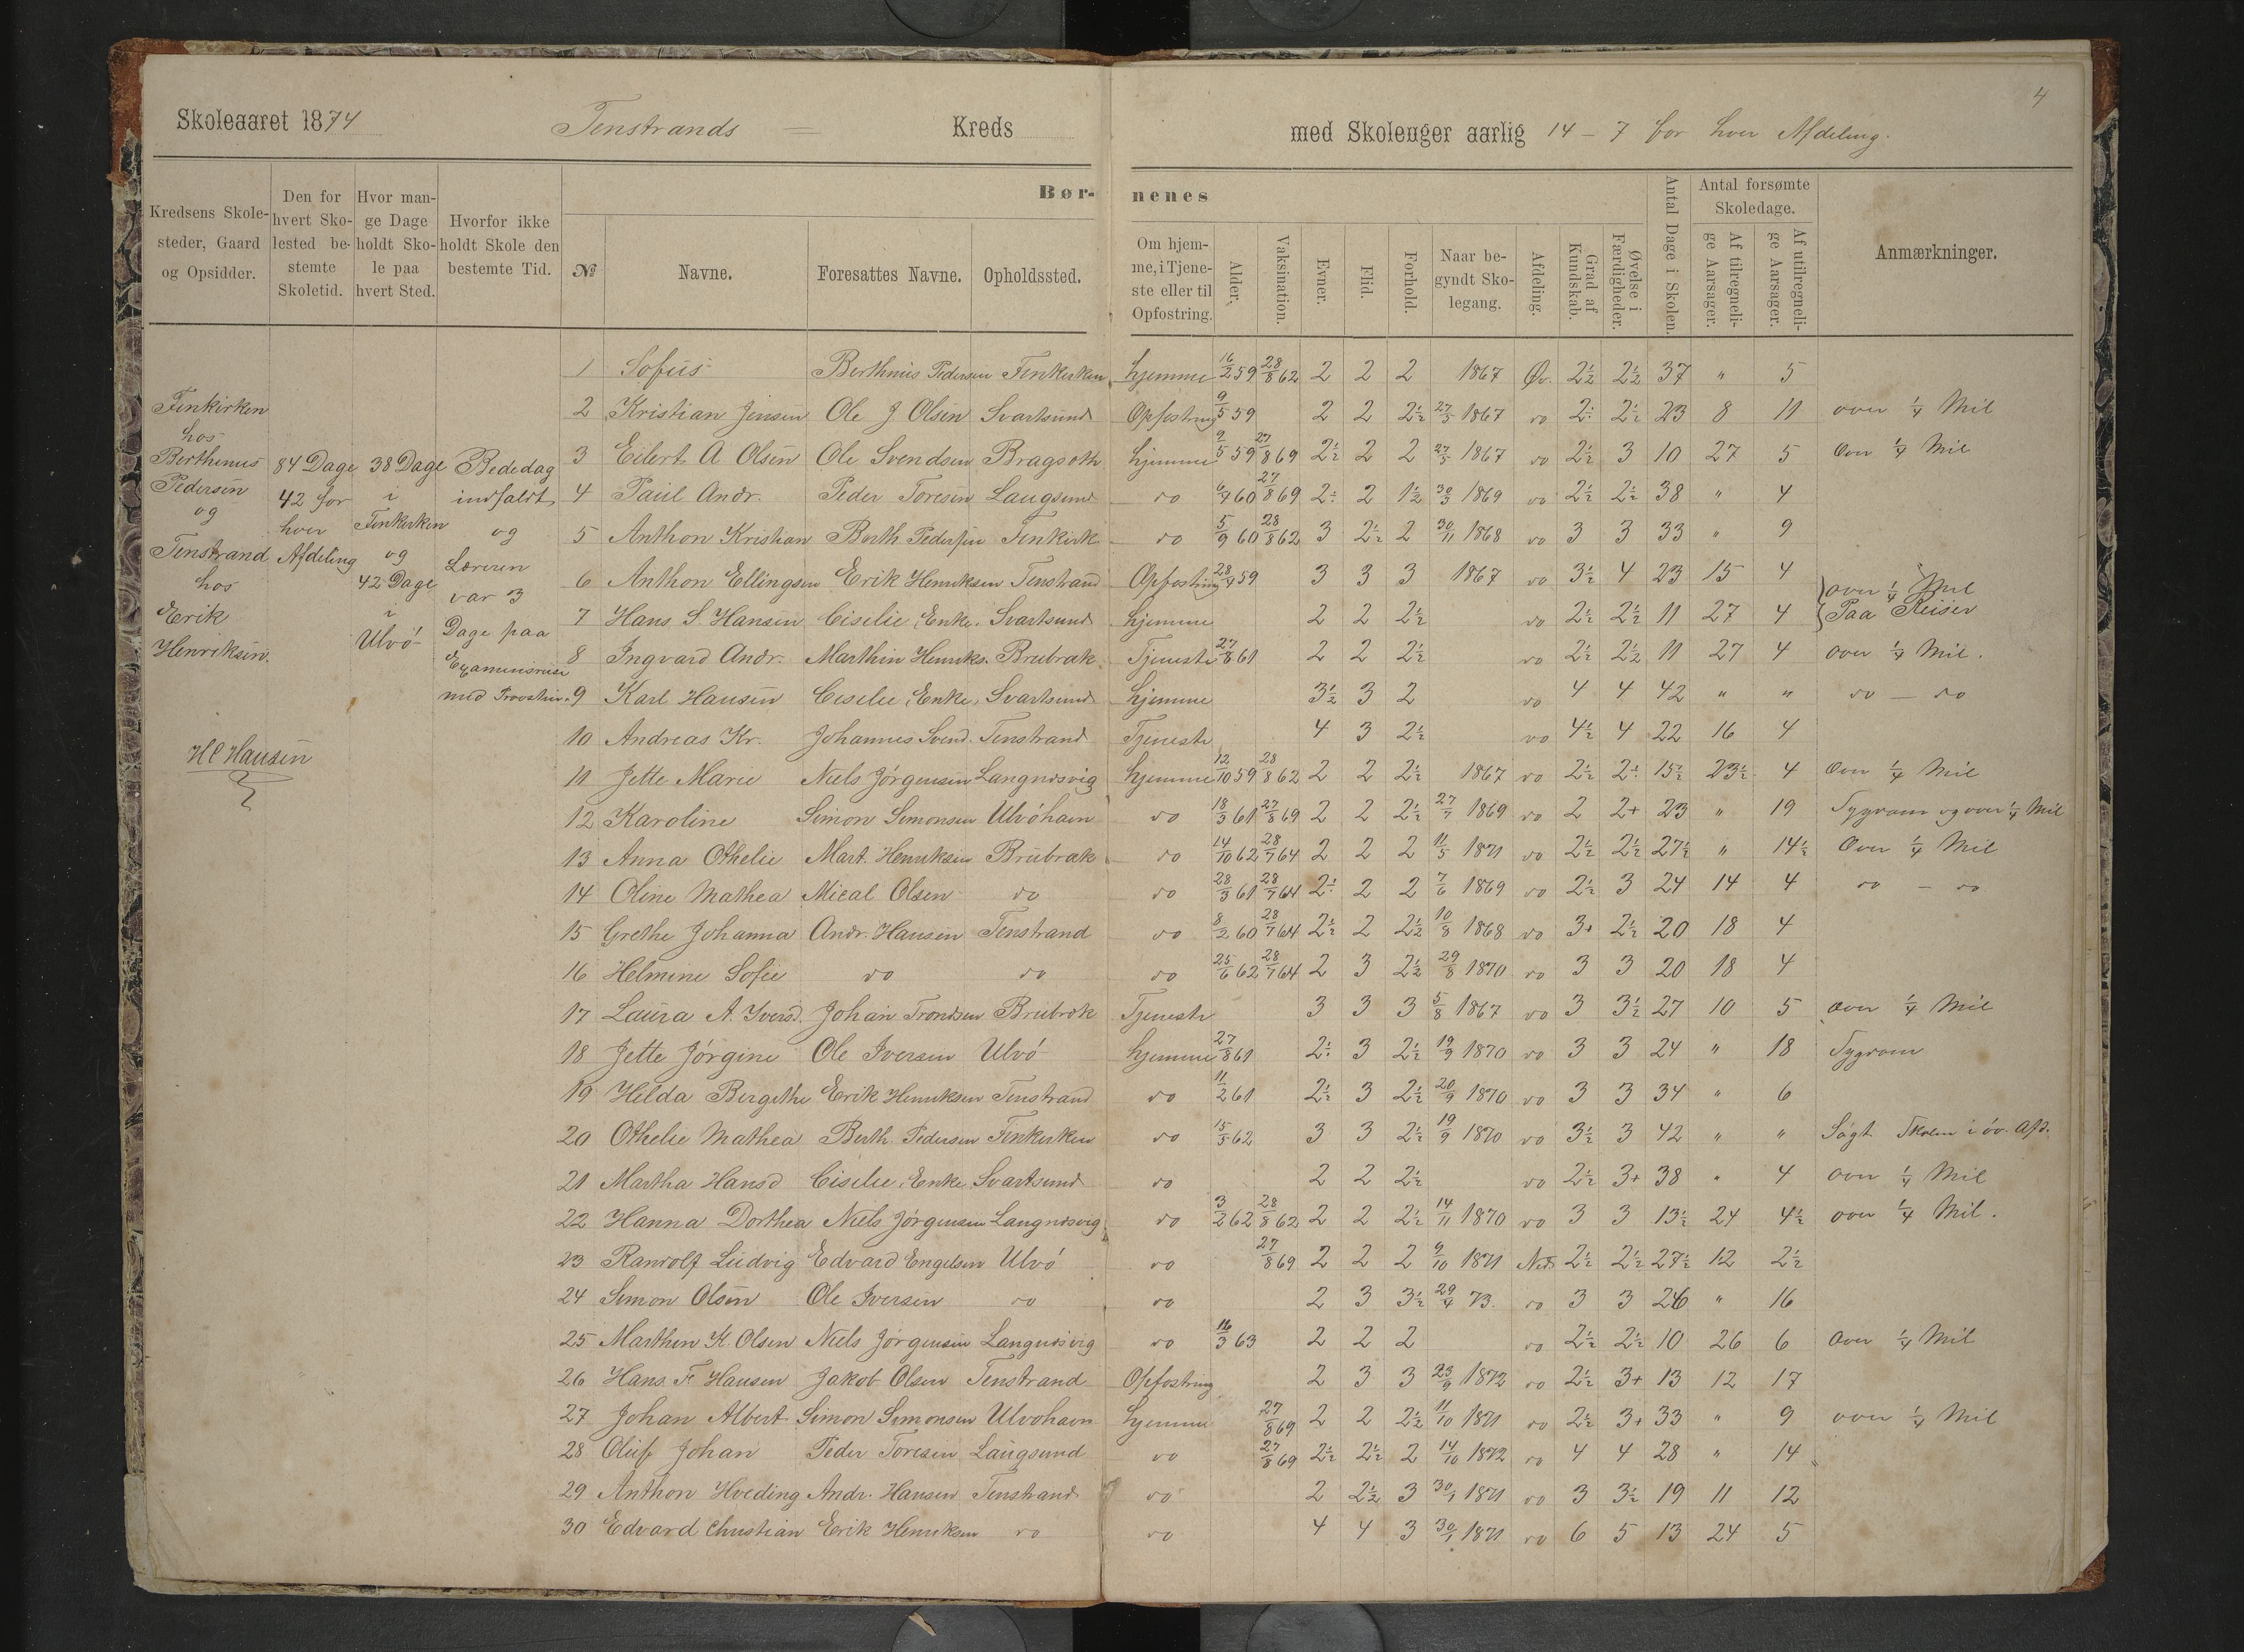 4
Skoleaaret 1874 Tenstrands Kreds med Skoleuger aarlig 14 - 7 for hver Afdeling.
Kredsens Skolesteder, Gaard og Opsidder.
Den for hvert Skolested bestemte Skoletid.
Hvor mange Dage holdt Skole paa hvert Sted.
Hvorfor ikke holdt Skole den bestemte Tid.
Børnenes
№
Navne.
Foresattes Navne.
Opholdssted.
Om hjemme, i Tjeneste eller til Opfostring.
Alder,
Vaksination.
Evner.
Flid.
Forhold.
Naar begyndt Skolegang.
Afdeling.
Grad af Kundskab.
Øvelse i Færdigheder.
Antal Dage i Skolen.
Antal forsømte Skoledage.
Af tilregnelige Aarsager.
Af utilregnelige Aarsager.
Anmærkninger.
Finkirken
hos
Berthinus
Pedersen
og
Tenstrand
hos
Erik
Henriksen.
HC Hansen
84 Dage
42 for
hver
Afdeling
38 Dage
i
Finkirken
og
42 Dage
i
Ulvö
Bededag
indfaldt,
og
Læreren
var 3
Dage paa
Examensreise
med Provsten.
1 Sofus Berthinus Pedersen Finkirken hjemme 16/2 59 28/8 62 2 2 2 1867 Øv. 2½ 2½ 37 " 5
2 Kristian Jensen Ole J Olsen Svartsund Opfostring 9/5 59 2 2 2½ 27/5 1867 do 2½ 2½ 23 8 11 over ¼ Mil
3 Eilert A Olsen Ole Svendsen Bragsoth hjemme 9/5 59 27/8 69 2½ 2 2 27/5 1867 do 2½ 3 10 27 5 Over ¼ Mil
4 Paul Andr. Peder Toresen Laugsund do 6/4 60 27/8 69 2½ 2 1½ 30/3 1869 do 2½ 2½ 38 " 4
5 Anthon Kristian Berth. Pedersen Finkirk. do 5/9 60 28/8 62 3 2½ 2 30/11 1868 do 3 3 33 " 9
6 Anthon Ellingsen Erik Henriksen Tenstrand Opfostring 28/4 59 3 3 3 1867 do 3½ 4 23 15 4 over ¼ Mil
7 Hans S. Hansen Ciselie, Enke, Svartsund hjemme 2 2 2½ do 2½ 2½ 11 27 4 Paa Reiser
8 Ingvard Andr. Marthin Henriks. Brubræk Tjeneste 27/8 61 2 2 2½ do 2½ 2½ 11 27 4 over ¼ Mil.
9 Karl Hansen Ciselie, Enke, Svartsund hjemme 3½ 3 2 do 4 4 42 " " do - do
10 Andreas Kr. Johannes Svend. Tenstrand Tjeneste 4 3 2½ do 4½ 4 22 16 4
11 Jette Marie Niels Jörgensen Langnæsvig hjemme 12/10 59 28/8 62 2 2 2½ 1867 do 2½ 2½ 15½ 23½ 4 Over ¼ Mil
12 Karoline Simon Simonsen Ulvöhavn do 18/3 61 27/8 69 2 2 2½ 27/7 1869 do 2 2+ 23 " 19 Sygdom og over ¼ Mil
13 Anna Othelie Mart. Henriksen Brubræk do 14/10 62 28/7 64 2 2 2 11/5 1871 do 2½ 2½ 27½ " 14½ Over ¼ Mil
14 Oline Mathea Mical Olsen do do 28/3 61 28/7 64 2½ 2 2 7/6 1869 do 2½ 3 24 14 4 do - do
15 Grethe Johanna Andr. Hansen Tenstrand do 8/2 60 28/7 64 2½ 2 2½ 10/8 1868 do 3+ 2½ 20 18 4
16 Helmine Sofie do do do 25/6 62 28/7 64 2 3 2½ 29/8 1870 do 3 3 20 18 4
17 Laura A. Iversd. Johan Trondsen Brubræk Tjeneste 3 3 3 5/8 1867 do 3 3½ 27 10 5 over ¼ Mil
18 Jette Jörgine Ole Iversen Ulvö hjemme 27/8 61 2½ 3 2½ 19/9 1870 do 3 3 24 " 18 Sygdom
19 Helda Bergithe Erik Henriksen Tenstrand do 11/2 61 2½ 3 2½ 20/9 1870 do 3 3 34 " 6
20 Othelie Mathea Berth. Pedersen Finkirken do 15/5 62 3 3 2½ 19/9 1870 do 3½ 3 42 " " Sögt Skolen i öv. Afd.
21 Martha Hansd Ciselie, Enke, Svartsund do 2 2 2½ do 2½ 3+ 38 " 4 over ¼ Mil
22 Hanna Dorthea Niels Jörgensen Langnæsvig do 3/2 62 28/8 62 2 2 2½ 14/11 1870 do 3 3 13½ 24 4½ over ¼ Mil.
23 Randolf Ludvig Edvard Engelsen Ulvö do 27/8 69 2 2 2 9/10 1871 Ned. 2½ 2½ 27½ 12 2½
24 Simon Olsen Ole Iversen do do 2 3 3½ 29/4 73. do 3 3 26 " 16
25 Marthin K. Olsen Niels Jörgensen Langnæsvig do 16/3 63 2 2 2 do 2½ 2½ 10 26 6 Over ¼ Mil
26 Hans F Hansen Jakob Olsen Tenstrand Opfostring 2 3 3 23/9 1872 do 2½ 3+ 13 12 17
27 Johan Albert Simon Simonsen Ulvöhavn hjemme 27/8 69 2 2 2½ 11/10 1871 do 2½ 3+ 33 " 9 over ¼ Mil
28 Oluf Johan Peder Toresen Laugsund do 27/8 69 2½ 2½ 2 14/10 1872 do 4 4 28 " 14
29 Anthon Hveding Andr. Hansen Tenstrand do 2 2½ 3 30/1 1871 do 3 3½ 19 11 12
30 Edvard Christian Erik Henriksen do do 4 4 3 30/1 1871 do 6 5 13 24 5